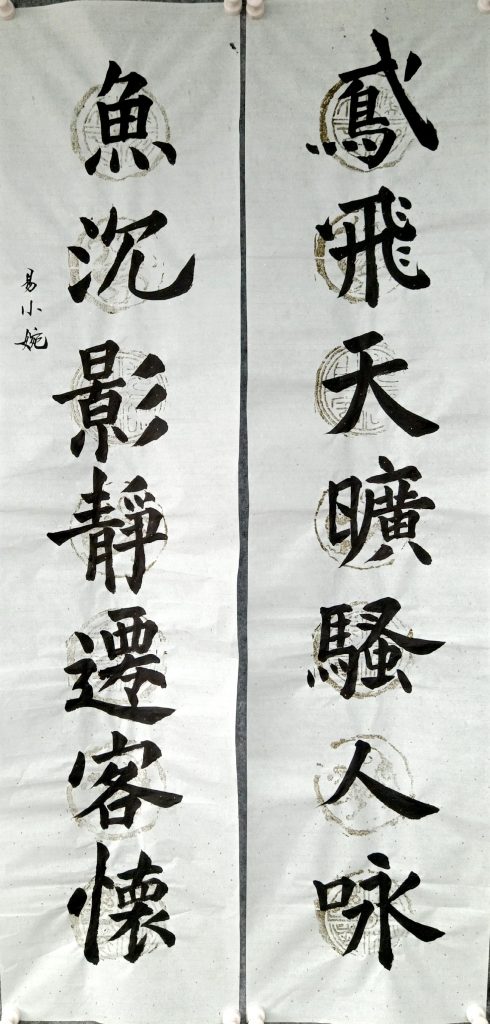 鳶飛天曠騷人咏
魚沉影靜遷客懷
易小婉